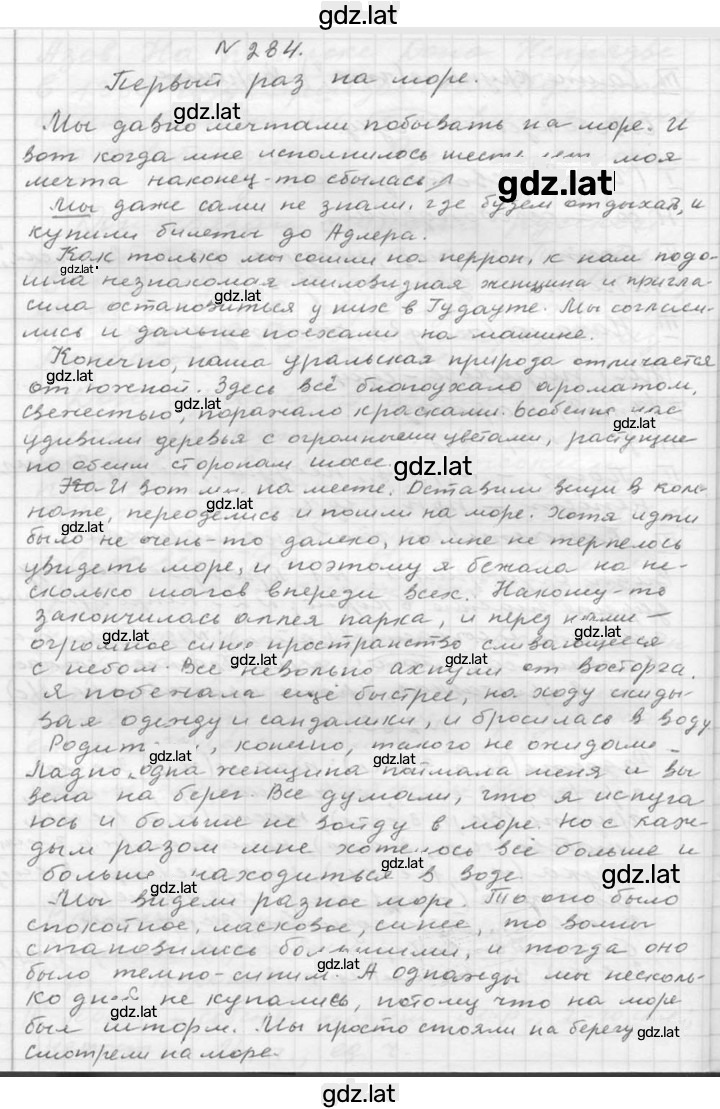 gdz.lat
N 284.
Первый раз на море.
gdz.lat
Мы давно мечтали побывать на море. И
вот когда мне исполнилось моя
мечта наконец-то сбылась.
gdz.lat
Мы даже сами не знали, где будем отдыхать, и
купили билеты до Адлера.
Как только мы сошли на перрон, к нам подо-
gdz.lat
шла незнакомая миловидная женщина и пригла-
gdz.lat
сила остановиться у них в Гудауте. Мы согласи-
лись и дальше поехали на машине.
Конечно, наша уральская природа отличается
gdz.lat
от южной. Здесь всё благоухало ароматом,
gdz.lat
свежестью, поражало красками. Особенно нас
gdz.lat
удивили деревья с огромными цветами, растущие
по обеим сторонам шоссе.
gdz.lat
И вот мы на месте. Оставили вещи в ком-
gdz.lat
нате, переоделись и пошли на море. Хотя идти
gdz.lat
было не очень-то далеко, но мне не терпелось
увидеть море, и поэтому я бежала на не-
сколько шагов впереди всех. Наконец-то
закончилась аллея парка, и перед нами —
gdz.lat
gdz.lat
огромное синее пространство сливающееся
gdz.lat
gdz.lat
с небом. Все невольно ахнули от восторга.
Я побежала ещё быстрее, на ходу скиды-
вая одежду и сандалики, и бросилась в воду.
Родит , конечно, такого не ожидали.
gdz.lat
gdz.lat
Ладно, одна женщина поймала меня и вы
вела на берег. Все думали, что я испуга
юсь и больше не войду в море. Но с каж-
дым разом мне хотелось всё больше и
gdz.lat
gdz.lat
больше находиться в воде
gdz.lat
Мы видели разное море. То оно было
спокойное, ласковое, синее, то волны
становились большими, и тогда оно
gdz.lat
было темно-синим. А однажды мы несколь-
ко дней не купались, потому что на море
был шторм. Мы просто стояли на берегу
gdz.lat
смотрели на море.
gdz.lat